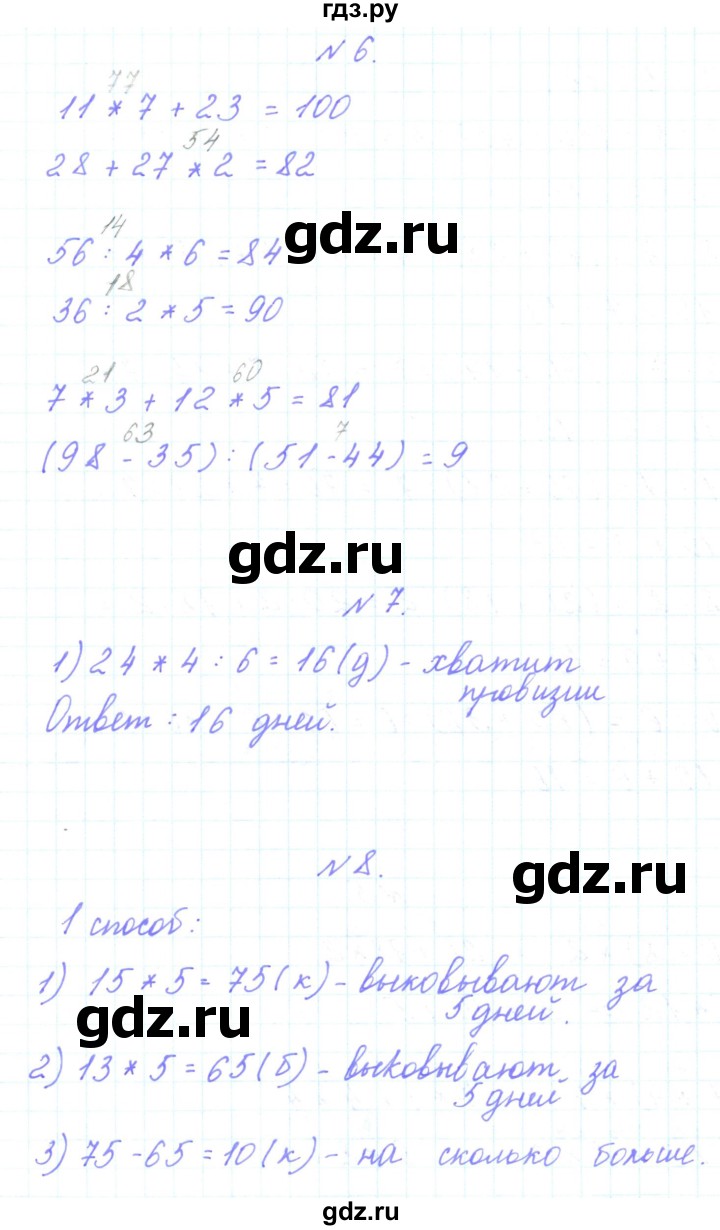 гдз.ру
N 6.
77
11 * 7 + 23 = 100
54
28 + 27 * 2 = 82
14
56 : 4 * 6 = 84
gdz.ru
18
36 : 2 * 5 = 90
21 60
7 * 3 + 12 * 5 = 81
63 7
(98 - 35) : (51 - 44) = 9
gdz.ru
N 7.
1) 24 * 4 : 6 = 16 (д) - хватит
провизии
Ответ : 16 дней.
N 8.
gdz.ru
1 способ:
1) 15 * 5 = 75 (к) - выковывают за
5 дней.
gdz.ru
2) 13 * 5 = 65 (б) - выковывают за
5 дней
3) 75 - 65 = 10 (к) - на сколько больше.
gdz.ru